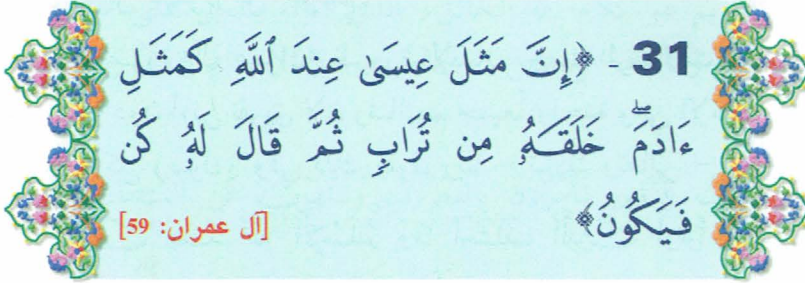 31 - ﴿إِنَّ مَثَلَ عِيسَىٰ عِندَ ٱللَّهِ كَمَثَلِ
ءَادَمَۖ خَلَقَهُۥ مِن تُرَابٖ ثُمَّ قَالَ لَهُۥ كُن
فَيَكُونُ﴾ [آل عمران: 59]